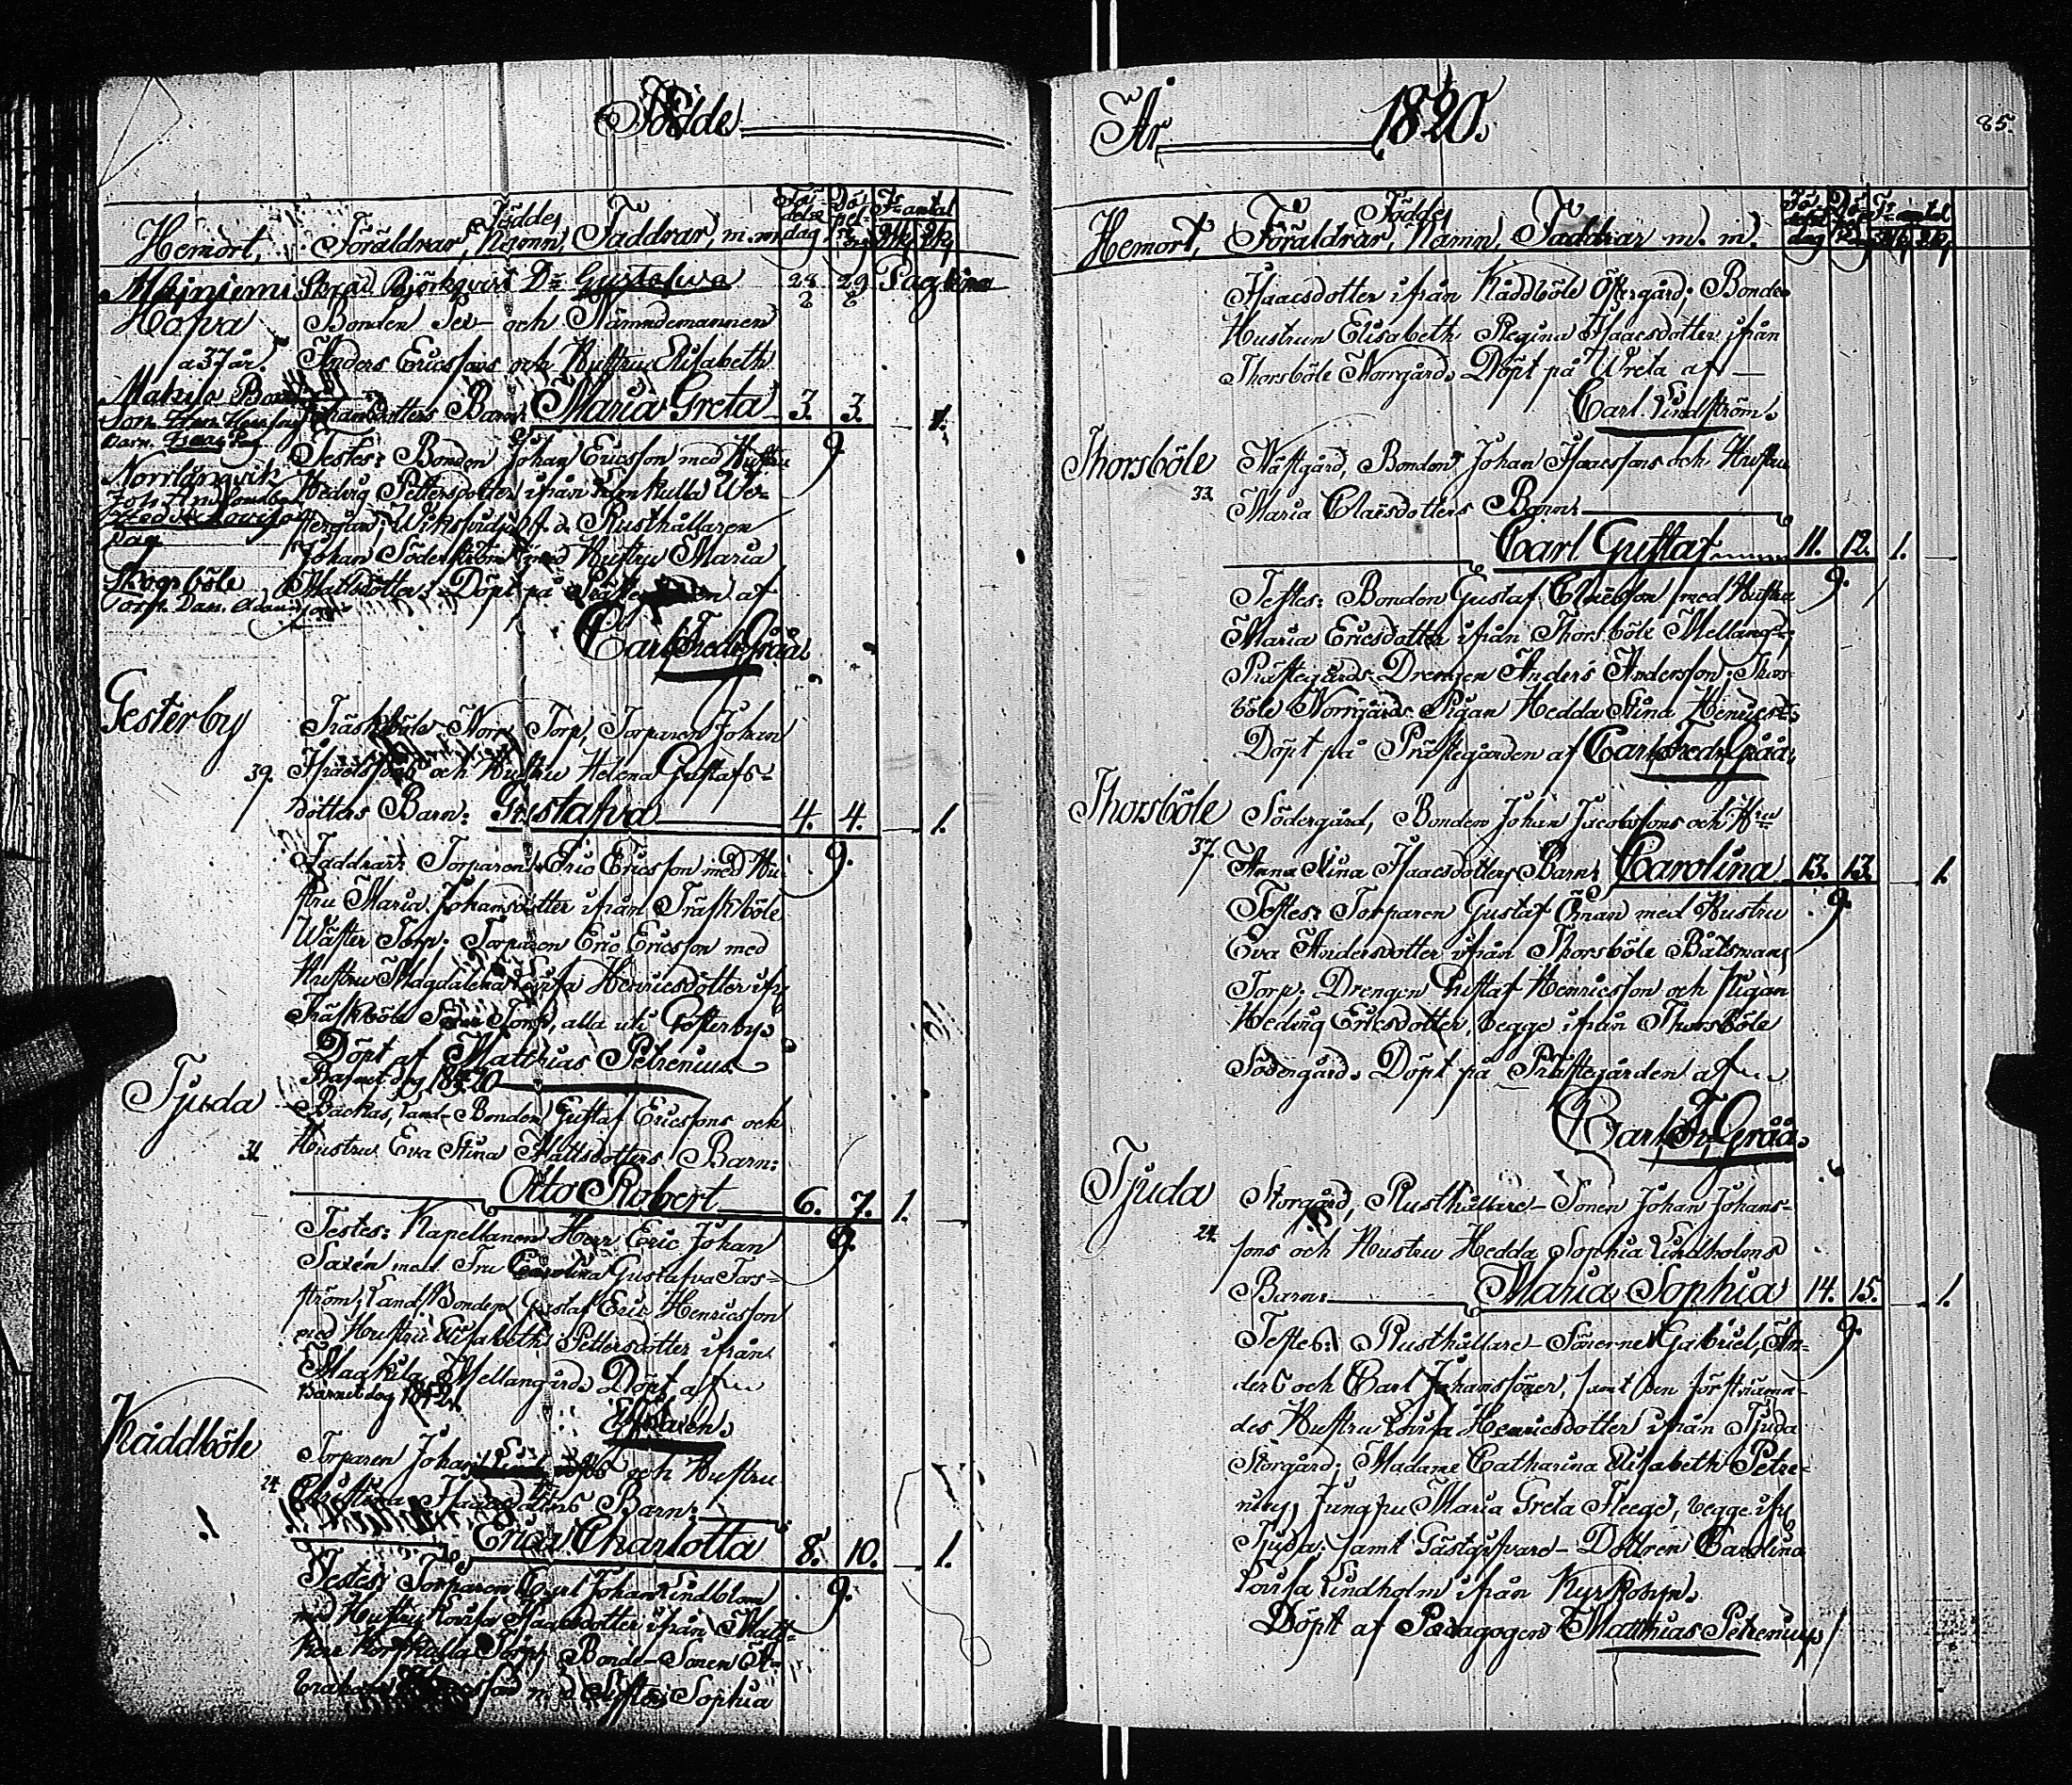 Födde
Hemort, Föräldrar, Födde, Namn, Faddrar, m. m. Födelse dag Döpelse dag Fs antal
Majniemi Skräd. Björkqvist Dr Gustafva 28/8 29/8 Pag
Hofva Bonden och Nämndemannen
a 37 år. Anders Ericssons och Hustru Elisabeth
Johansdotters Barn: Maria Greta 3. 3. 1.
Testes: Bonden Johan Ericsson med Hustru 9.
Norrlångvik Hedvig Pettersdotter ifrån
Rusthållaren
Johan Söderström med Hustru Maria
Skogsböle Mattsdotter. Döpt på af
Carl Fredr Gråå.
Gesterby Träskböle Norr Torp, Torparen Johan
39. och Hustru Helena Gustafs-
dotters Barn: Gustafva 4. 4. 1.
Faddrar: Torparen Eric Ericsson med Hu- 9.
stru Maria Johansdotter ifrån Träskböle
Wäster Torp: Torparen Eric Ericsson med
Hustru Magdalena Lovisa Henricsdotter ifr
Träskböle Söder Torp, alla uti Gesterby.
Döpt af Matthias Petrenius
Barnet dog 18
Tjuda Backas, Land-Bonden Gustaf Ericssons och
31. Hustru Eva Stina Mattsdotters Barn:
Otto Robert 6. 7. 1.
Testes: Kapellanen Herr Eric Johan 9.
Saxén med Fru Carolina Gustafva Tors-
ström; Land-Bonden Gustaf Eric Henricsson
med Hustru Elisabeth Pettersdotter ifrån
Maakila Mellangård. Döpt af
Barnet dog 18
Saxén.
Råddböle Torparen Johan och Hustru
24. Christina Barn:
Erica Charlotta 8. 10. 1.
Testes: Torparen Carl Johan Lindblom 9.
med Hustru Lovisa Isaacsdotter ifrån
Torp, Bonde-Sonen A-
braham med Syster Sophia
År 1820. 85.
Hemort, Föräldrar, Födde, Namn, Faddrar m. m. Födelse dag Döp dag Fs antal
Isaacsdotter ifrån Råddböle Östergård; Bonde
Hustrun Elisabeth Regina Isaacsdotter ifrån
Thorsböle Norrgård. Döpt på Wreta af
Carl Lindström.
Thorsböle Wästgård, Bonden Johan Isaacssons och Hustru
33. Maria Claësdotters Barn:
Carl Gustaf 11. 12. 1.
Testes: Bonden Gustaf Claësson med Hustru 9.
Maria Ericsdotter ifrån Thorsböle Mellang:
Prästegårds Drengen Anders Andersson; Thors-
böle Norrgårds Pigan Hedda Stina Henricsdr
Döpt på Prästegården af Carl Fredr Gråå.
Thorsböle Södergård, Bonden Johan Jacobssons och Hru
37. Anna Stina Isaacsdotters Barn: Carolina 13. 13. 1.
Testes: Torparen Gustaf Öman med Hustru 9.
Eva Andersdotter ifrån Thorsböle Båtsmans
Torp: Drengen Gustaf Henricsson och Pigan
Hedvig Ericsdotter, begge ifrån Thorsböle
Södergård. Döpt på Prästegården af
Carl Fr Gråå.
Tjuda Storgård, Rusthållare-Sonen Johan Johans-
24. sons och Hustru Hedda Sophia Lindholms
Barn: Maria Sophia 14. 15. 1.
Testes: Rusthållare-Sönerne Gabriel, An- 9.
ders och Carl Johanssöner, samt den förstnämn-
des Hustru Lovisa Henricsdotter ifrån Tjuda
Storgård; Madame Catharina Elisabeth Petre-
nius, Jungfru Maria Greta Fleege, begge ifr
Tjuda; samt Gästgifvare-Dottren Carolina
Lovisa Lindholm ifrån Kyrkobyn.
Döpt af Pædagogen Matthias Petrenius